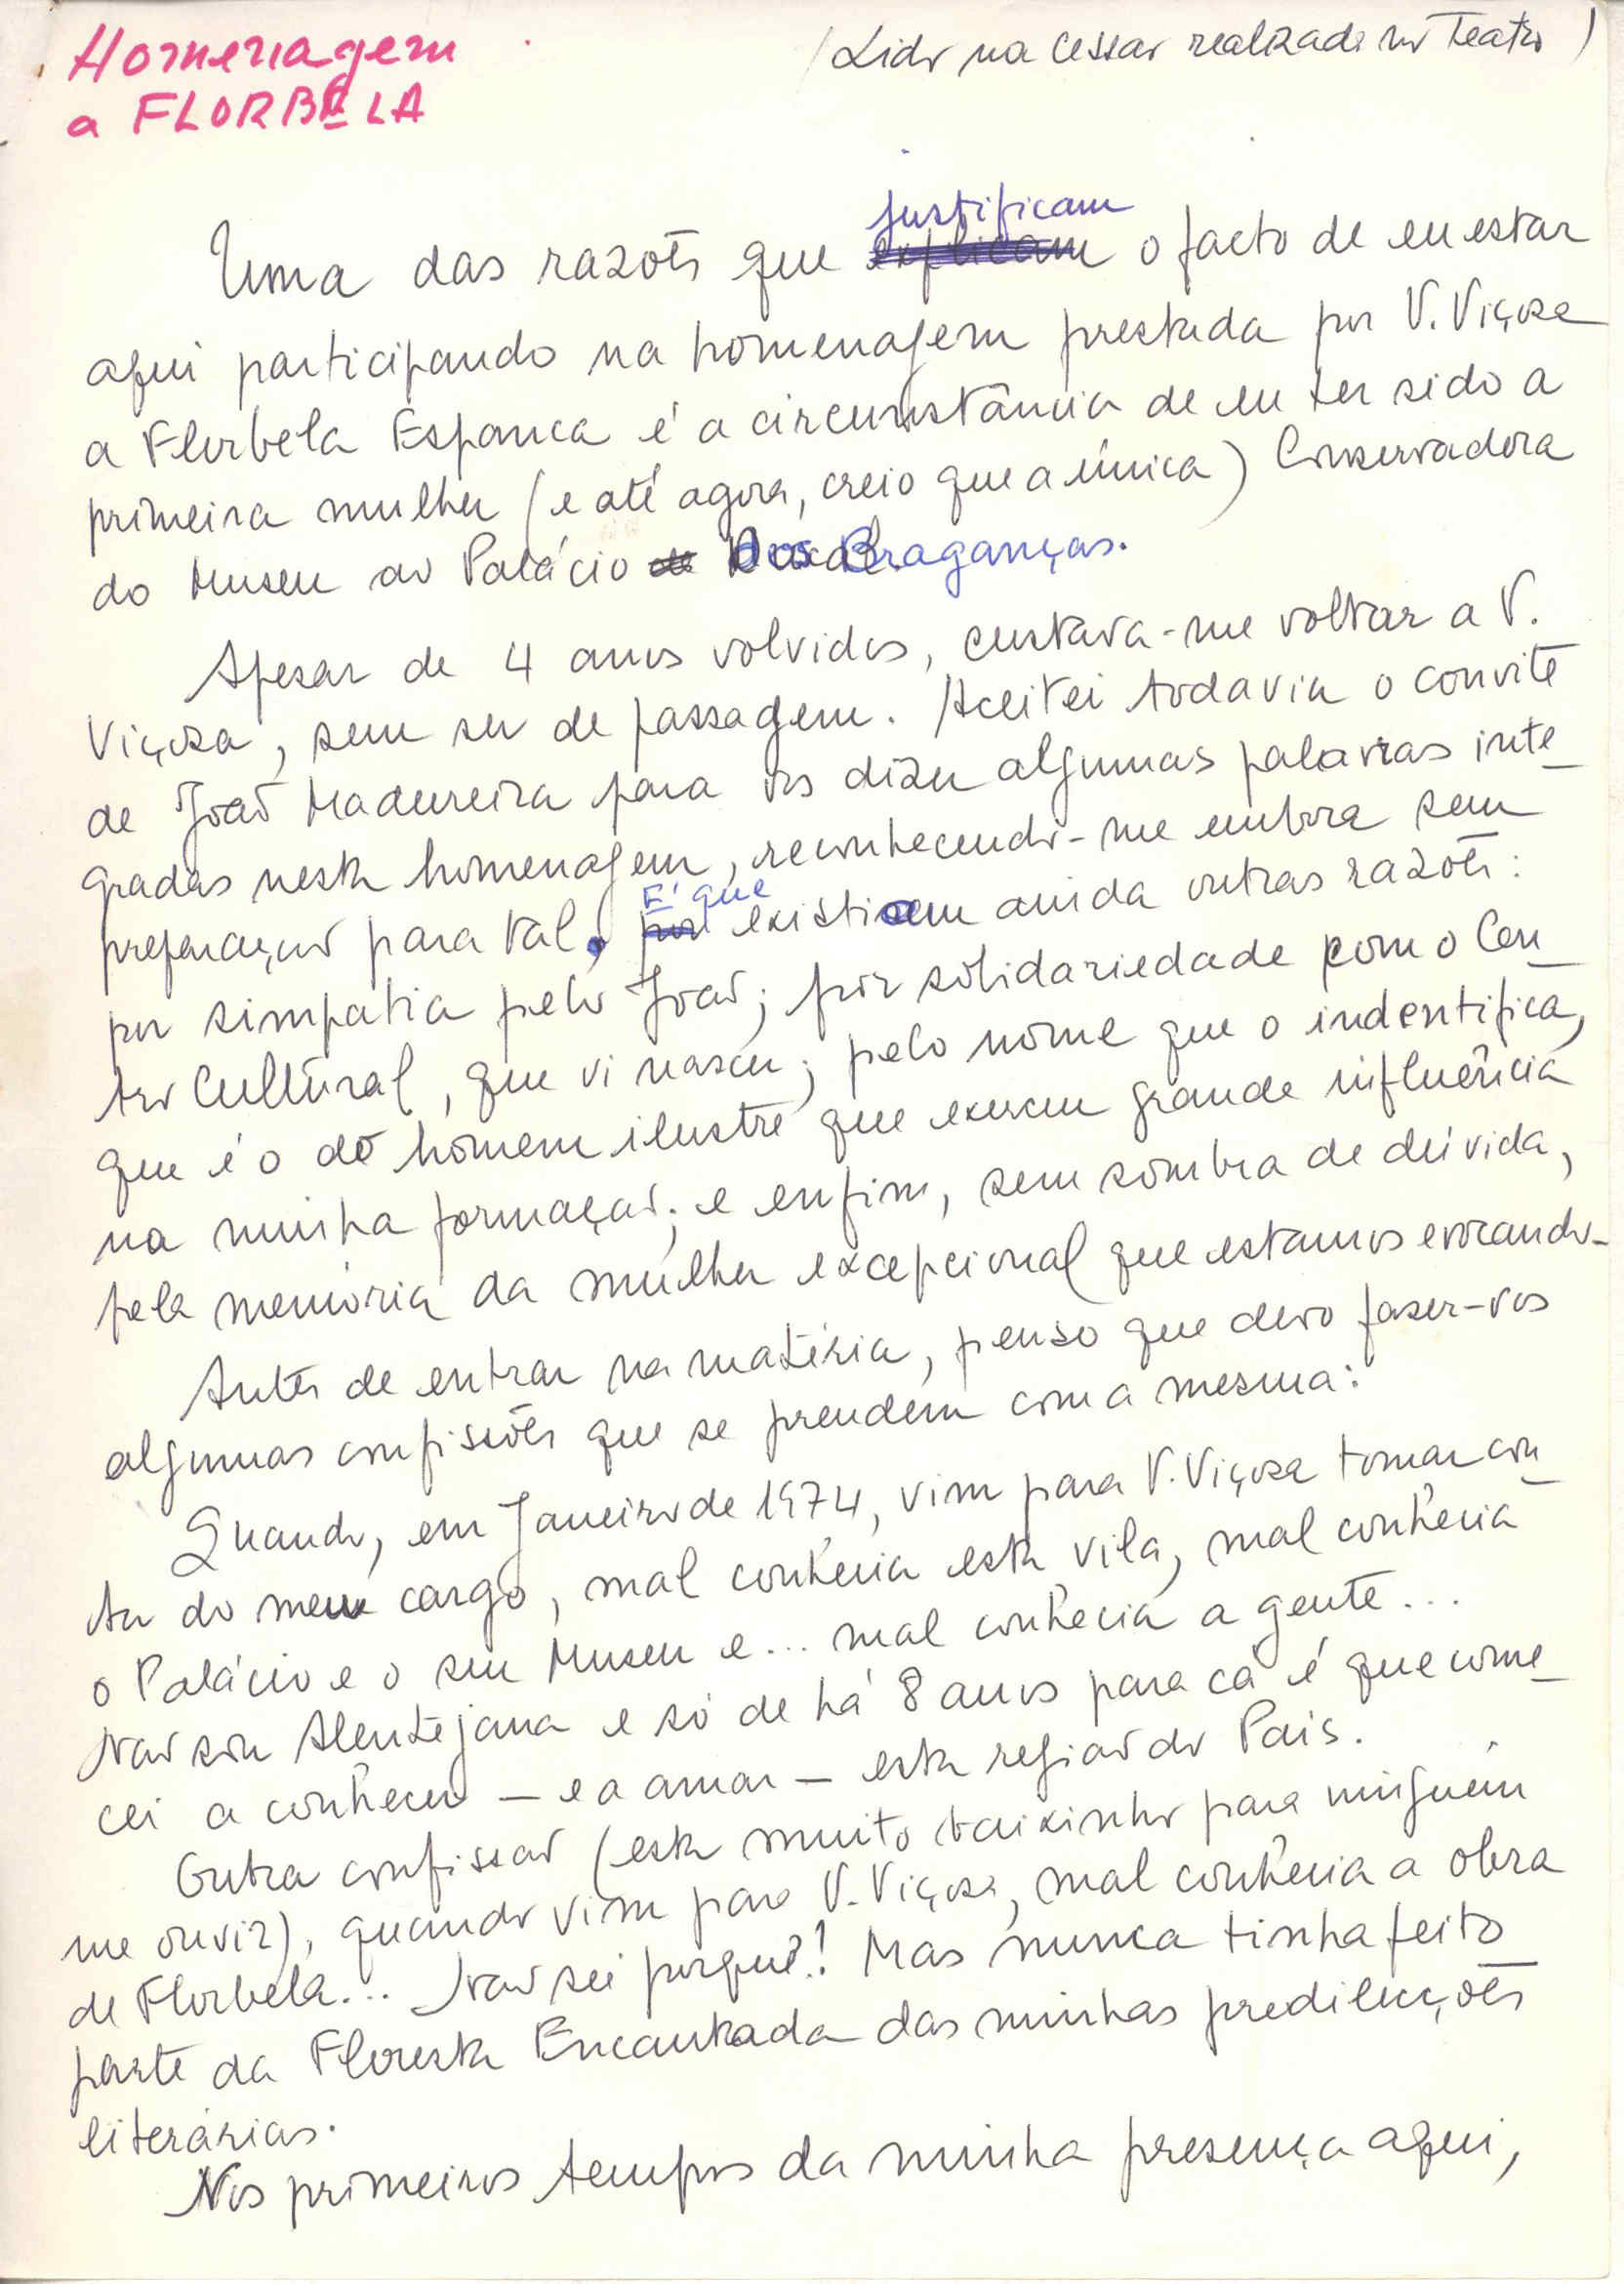 Homenagem
a FLORBELA
(Lido na cessão realizada no Teatro)
justificam
Uma das razões que explicam o facto de eu estar
aqui participando na homenagem prestada por V. Viçosa
a Florbela Espanca é a circunstância de eu ter sido a
primeira mulher (e até agora, creio que a única) Conservadora
do Museu do Palácio dos Braganças.
Apesar de 4 anos volvidos, custava-me voltar a V.
Viçosa, sem ser de passagem. Aceitei todavia o convite
de João Madureira para vos dizer algumas palavras inte-
gradas nesta homenagem, reconhecendo-me embora sem
É que
preparação para tal. por existiam ainda outras razões:
por simpatia pelo João; por solidariedade com o Cen-
tro Cultural, que vi nascer; pelo nome que o indentifica,
que é o do homem ilustre que exerceu grande influência
na minha formação; e enfim, sem sombra de dúvida,
pela memória da mulher excepcional que estamos evocando-
Antes de entrar na matéria, penso que devo faser-vos
algumas confissões que se prendem com a mesma:
Quando, em Janeiro de 1974, vim para V. Viçosa tomar con-
ta do meu cargo, mal conhecia esta vila, mal conhecia
o Palácio e o seu Museu e... mal conhecia a gente...
Não sou Alentejana e só de há 8 anos para cá é que come-
cei a conhecer — e a amar — esta região do País.
Outra confissão (esta muito baixinho para ninguém
me ouvir), quando vim para V. Viçosa, mal conhecia a obra
de Florbela... Não sei porquê! Mas nunca tinha feito
parte da Floresta Encantada das minhas predilecções
literárias.
Nos primeiros tempos da minha presença aqui,